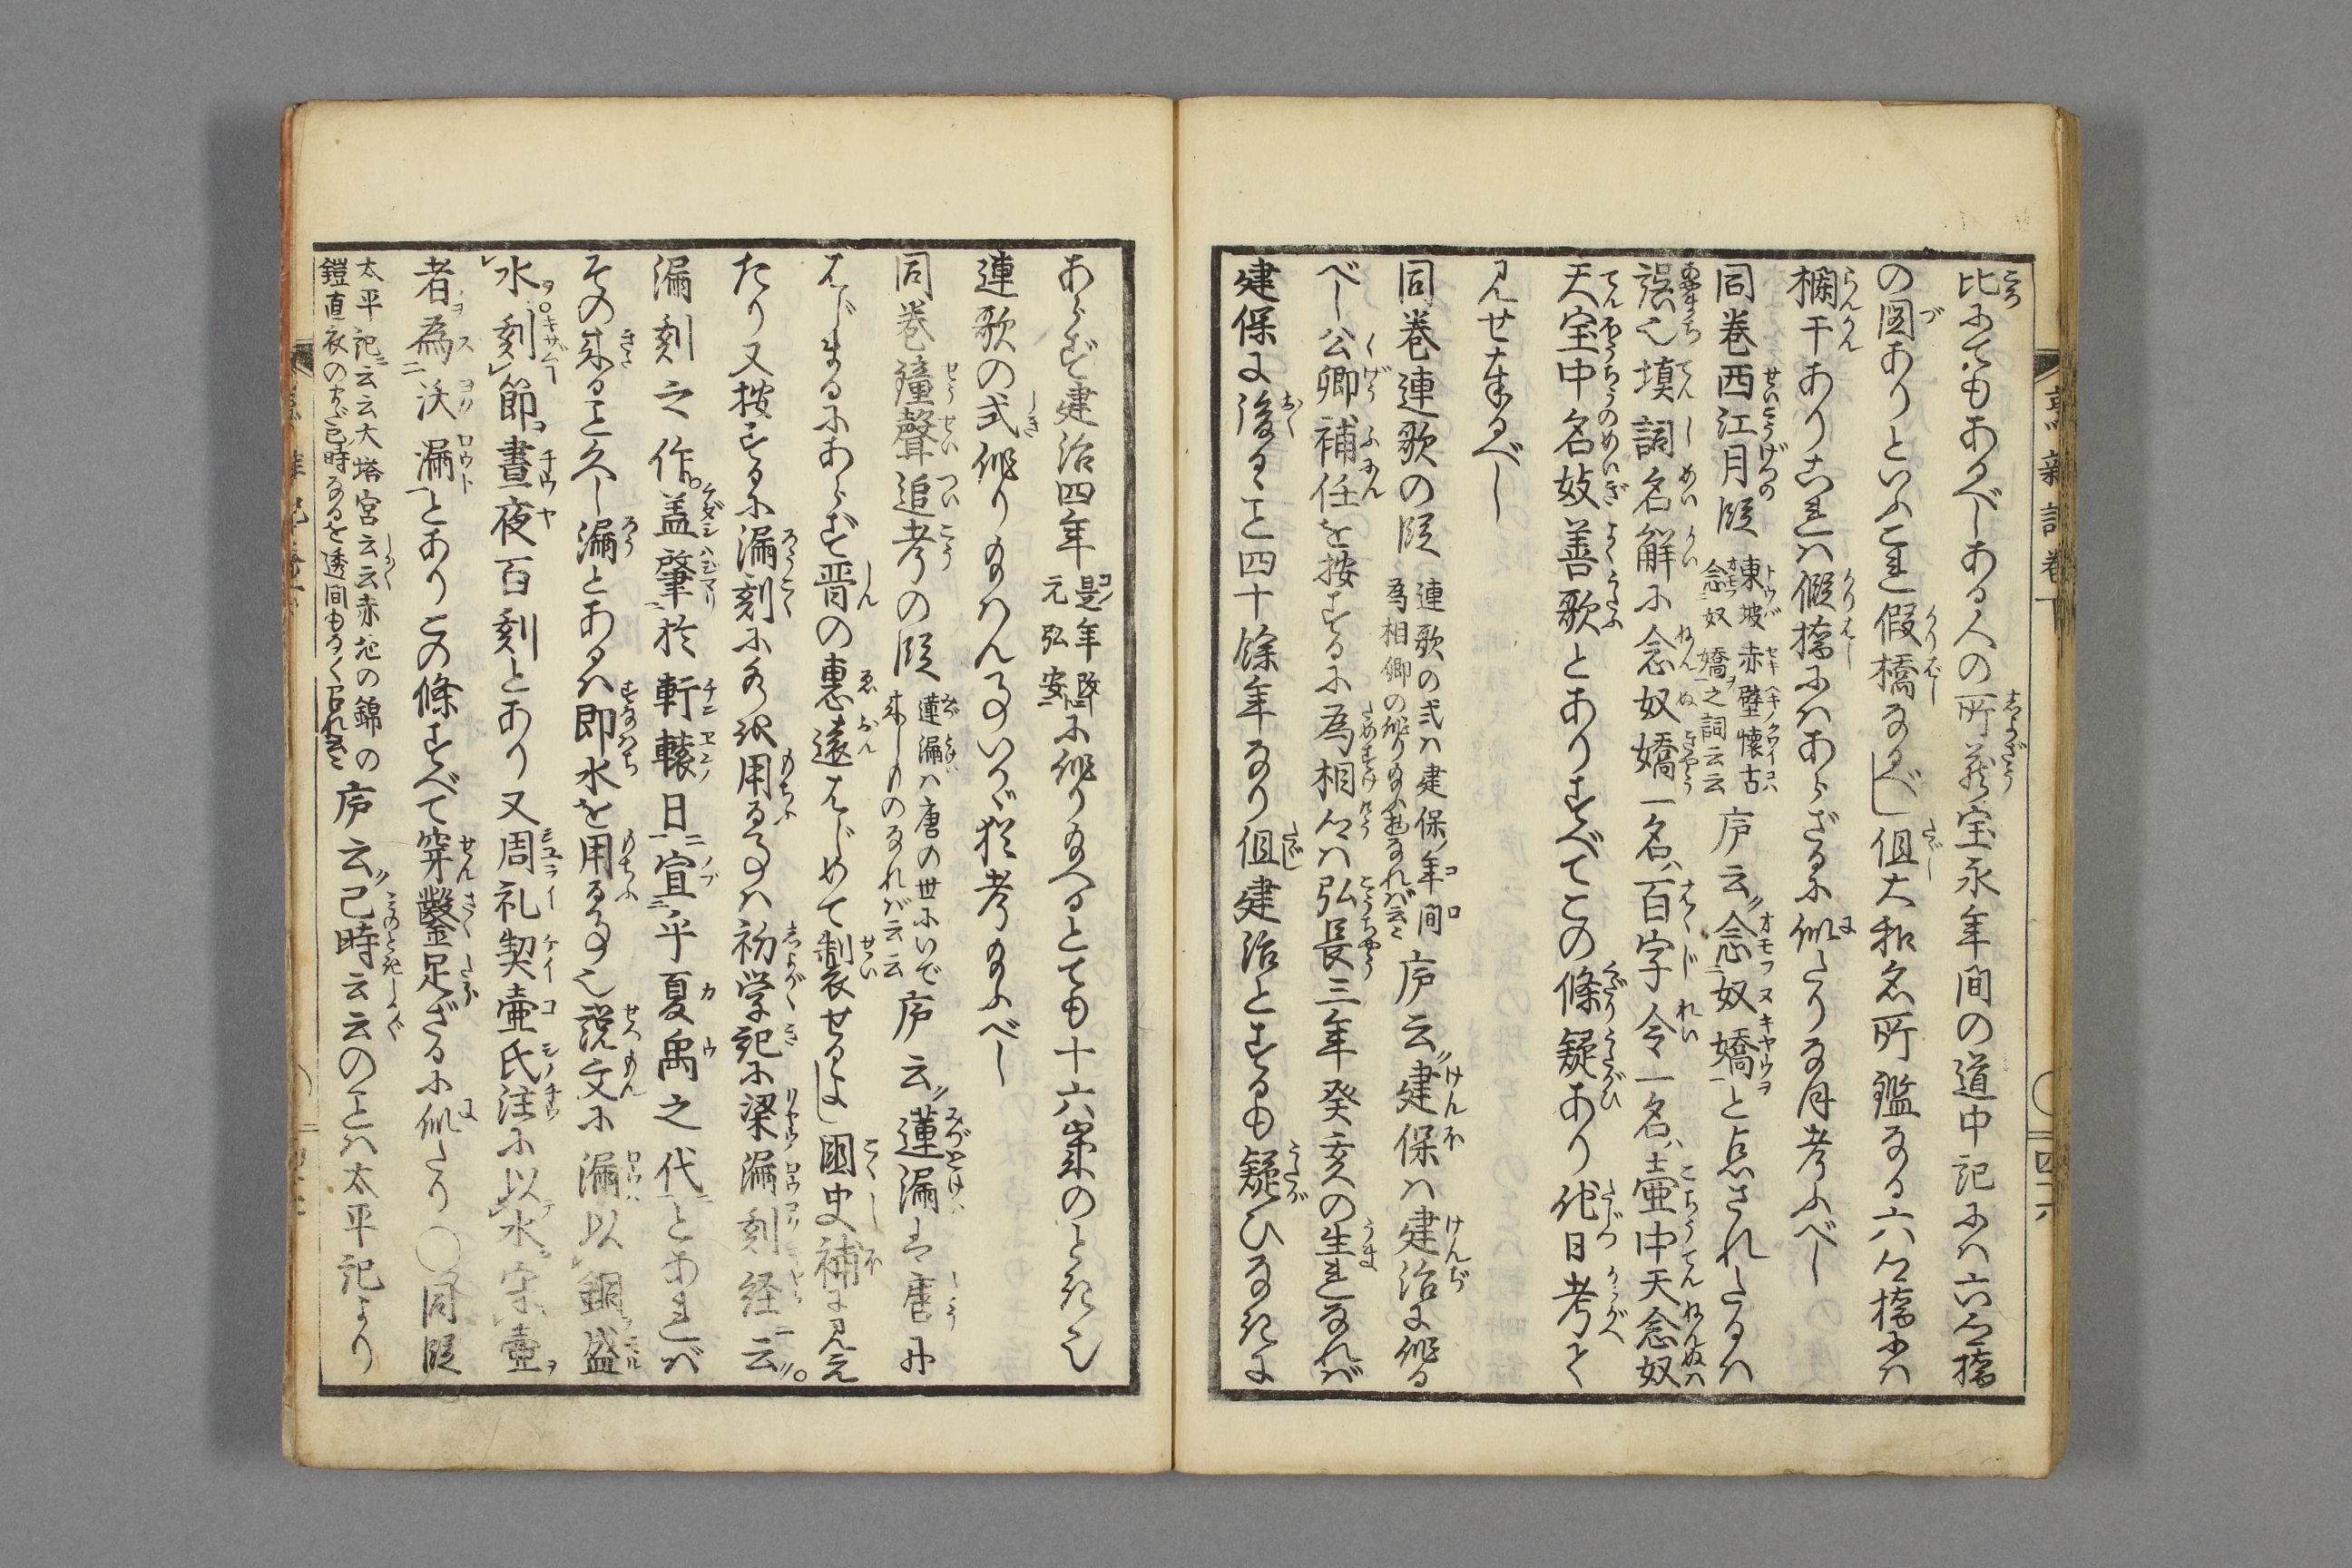 比にてもあるべしある人の所蔵宝永年間の道中記には六郷橋
の図ありといふこれ假橋なるべし但大和名所鑑なる六郷橋には
欄干ありこれは假橋にはあらざるに似たりなほ考ふべし
同巻西江月の段 東坡赤壁懐古 念奴嬌之詞云云 序云〻念奴嬌と点されたるは
誤也填詞名解に念奴嬌一名百字令一名壷中天念奴
天宝中名妓善歌とありすべてこの條疑あり他日考て
見せ奉るべし
同巻連歌の段 連歌の式は建保ノ年間 為相卿の作り給ふ処なれば云〻 序云〻建保は建治に作る
べし公卿補任を按ずるに為相卿は弘長三年癸亥の生れなれば
建保に後るゝこと四十餘年なり但建治とするも疑ひなきに
あらず建治四年 是年改元弘安 に作り給へるとても十六歳のとき也
連歌の式作り給はん事のいかゞ猶考給ふべし
同巻鐘聲追考の段 蓮漏は唐の世にいで来しものなれば云云 序云〻蓮漏は唐に
はじまるにあらず晋の恵遠はじめて製せるよし國史補に見え
たり又按ずるに漏刻に水を用る事は初学記に梁漏刻経云〻
漏刻之作盖肇於軒轅日宣乎夏禹之代とあれば
その来ること久し漏とあるは即水を用る事也説文に漏以銅盛
水刻節晝夜百刻とあり又周礼契壷氏注に以水守壷
者為沃漏とありこの條すべて穿鑿足ざるに似たり〇同段
太平記ニ云云大塔宮云云赤地の錦の 鎧直衣のまだ巳時なるを透間もなく 序云〻己時云云のことは太平記より